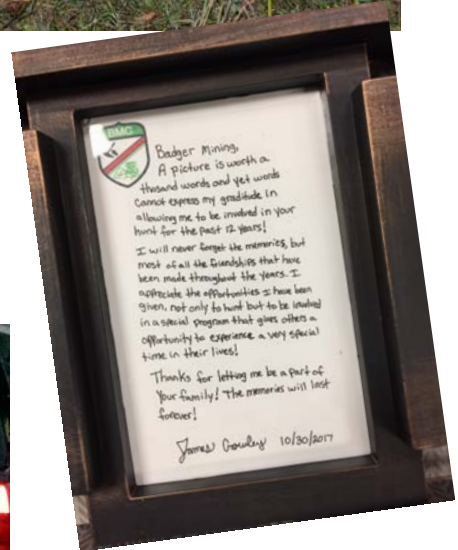 BMC
Badger Mining,
A picture is worth a
thosand words and yet words
cannot express my graditude in
allowing me to be involved in your
hunt for the past 12 years!
I will never forget the memories, but
most of all the friendships that have
been made throughout the years. I
appreciate the opportunities I have been
given, not only to hunt but to be involved
in a special program that gives others a
opportunity to experience a very special
time in their lives!
Thanks for letting me be a part of
your family! The memories will last
forever!
James Crowley 10/30/2017